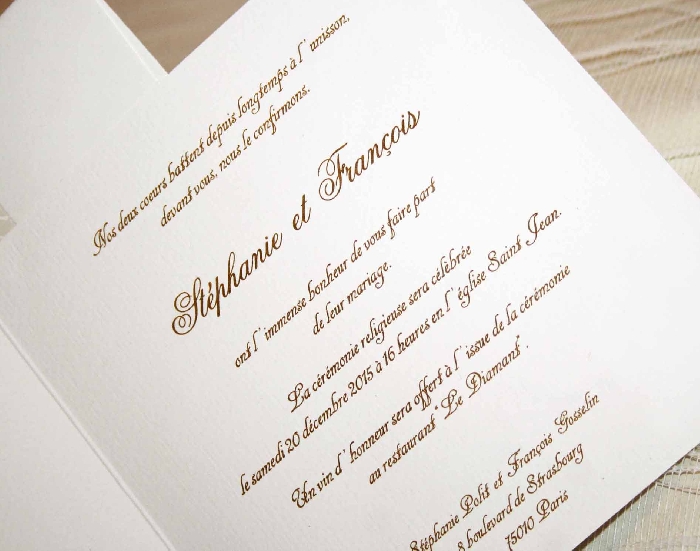 Nos deux coeurs battent depuis longtemps à l'unisson,
devant vous, nous le confirmons.
Stéphanie et François
ont l'immense bonheur de vous faire part
de leur mariage.
La cérémonie religieuse sera célébrée
le samedi 20 décembre 2015 à 16 heures en l'église Saint Jean.
Un vin d'honneur sera offert à l'issue de la cérémonie
au restaurant "Le Diamant".
Stéphanie Polit et François Gosselin
8 boulevard de Strasbourg
75010 Paris